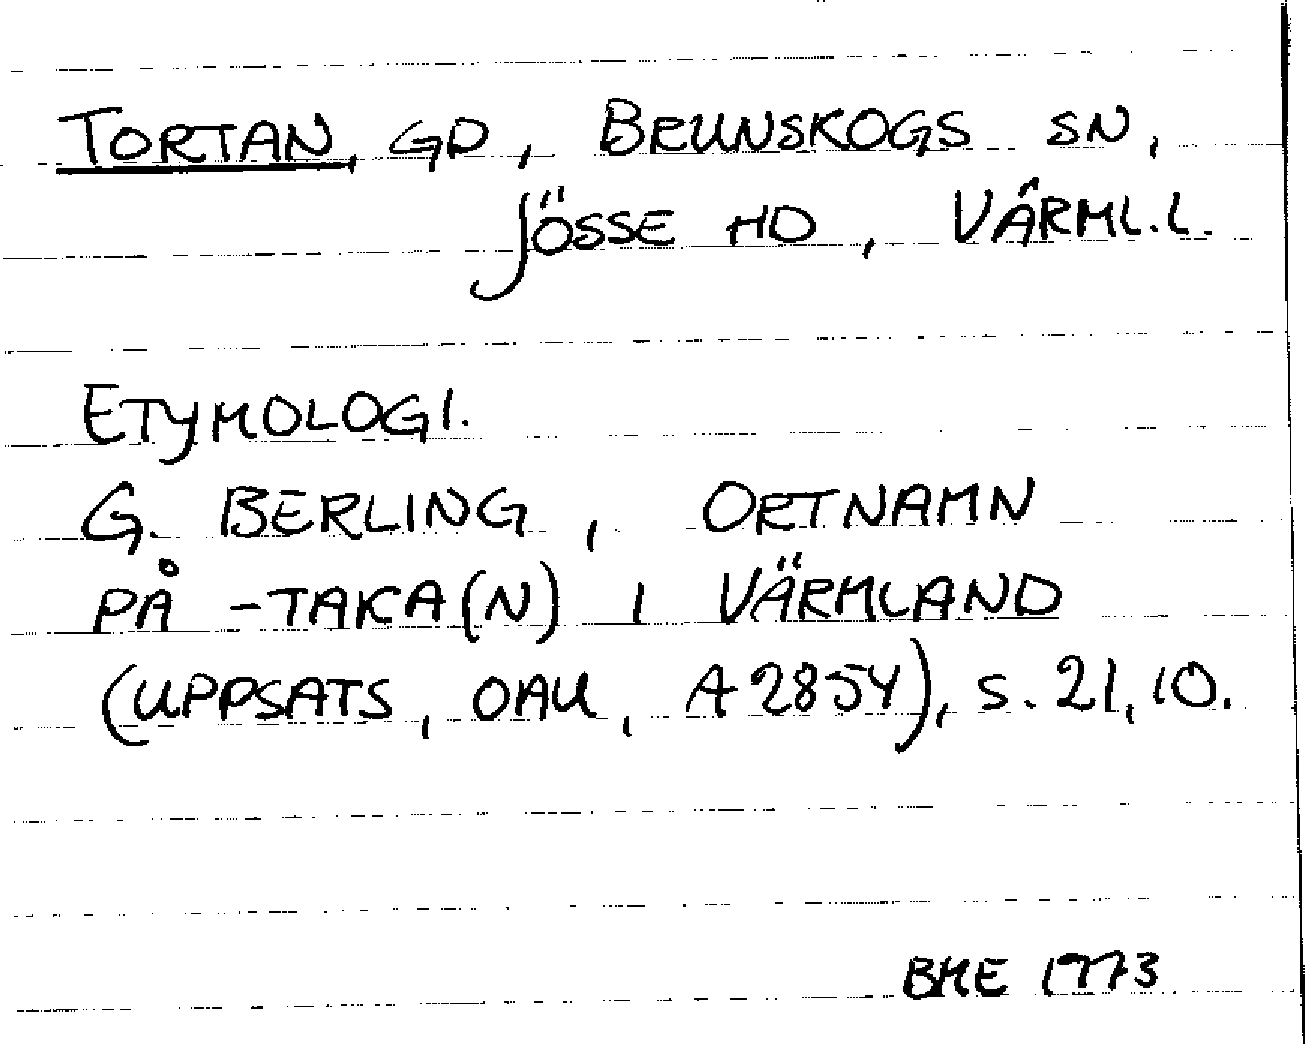 TORTAN, GD, BRUNSKOGS SN,
JÖSSE HD, VÄRML.L.
ETYMOLOGI.
G. BERLING, ORTNAMN
PÅ -TAKA(N) I VÄRMLAND
(UPPSATS, OAU, A2854), S. 21, 10.
BME 1973